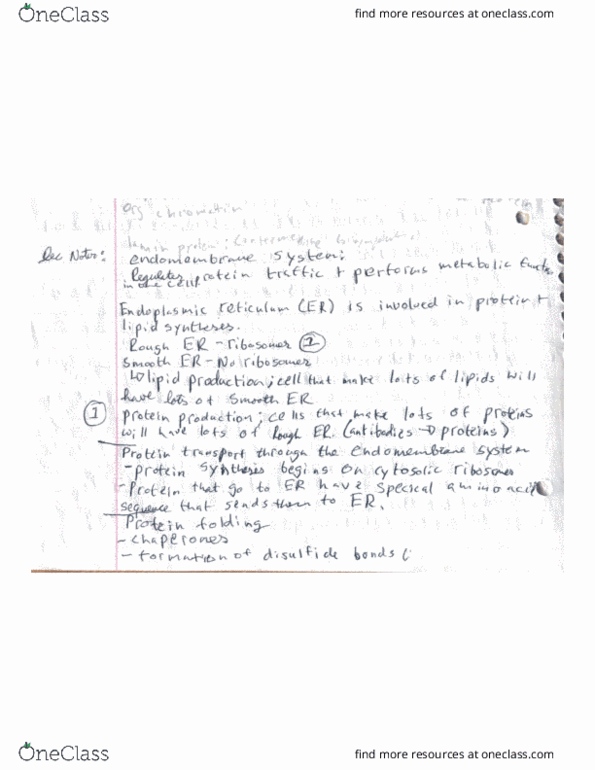 OneClass
find more resources at oneclass.com
Org chromatin
Lec Notes:
endomembrane system:
Regulates protein traffic + performs metabolic
in the cell
Endoplasmic reticulum (ER) is involved in protein +
lipid syntheses.
Rough ER - ribosomes 2
Smooth ER - No ribosomes
↳ lipid production; cell that make lots of lipids will
have lots of Smooth ER
1 Protein production; cells that make lots of proteins
will have lots of Rough ER. (antibodies → proteins)
Protein transport through the Endomembrane system
- protein synthesis begins on cytosolic ribosomes
- Protein that go to ER have special amino acid
sequence that sends them to ER.
Protein folding
- chaperones
- formation of disulfide bonds (
OneClass
find more resources at oneclass.com